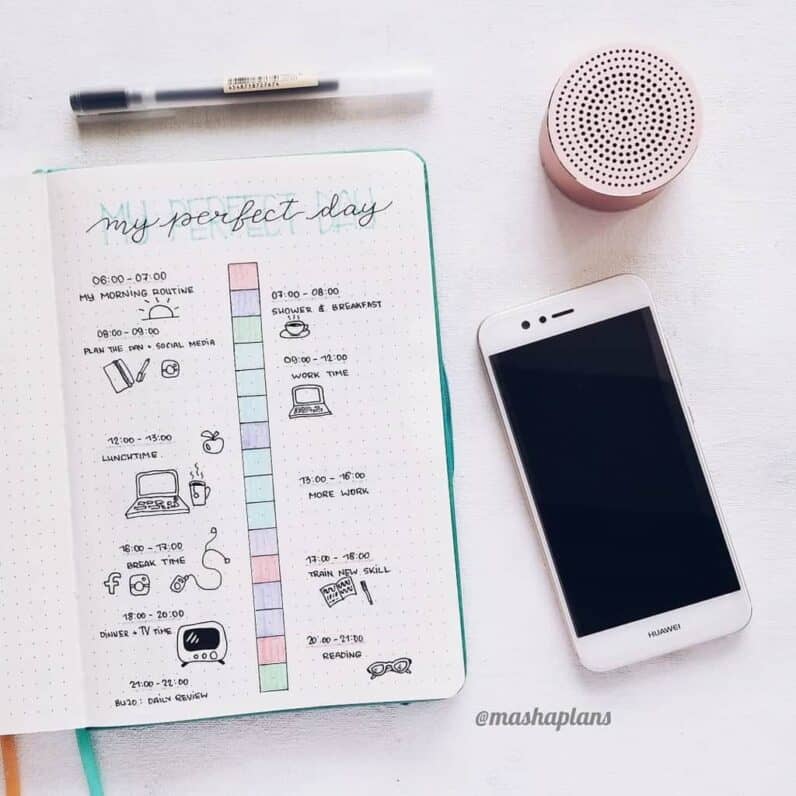 4548718727674
MY PERFECT DAY
my perfect day
06:00 - 07:00
MY MORNING ROUTINE
07:00 - 08:00
SHOWER & BREAKFAST
08:00 - 09:00
PLAN THE DAY + SOCIAL MEDIA
09:00 - 12:00
WORK TIME
12:00 - 13:00
LUNCHTIME
13:00 - 16:00
MORE WORK
16:00 - 17:00
BREAK TIME
f
17:00 - 18:00
TRAIN NEW SKILL
18:00 - 20:00
DINNER + TV TIME
20:00 - 21:00
READING
21:00 - 22:00
BUJO: DAILY REVIEW
HUAWEI
@mashaplans